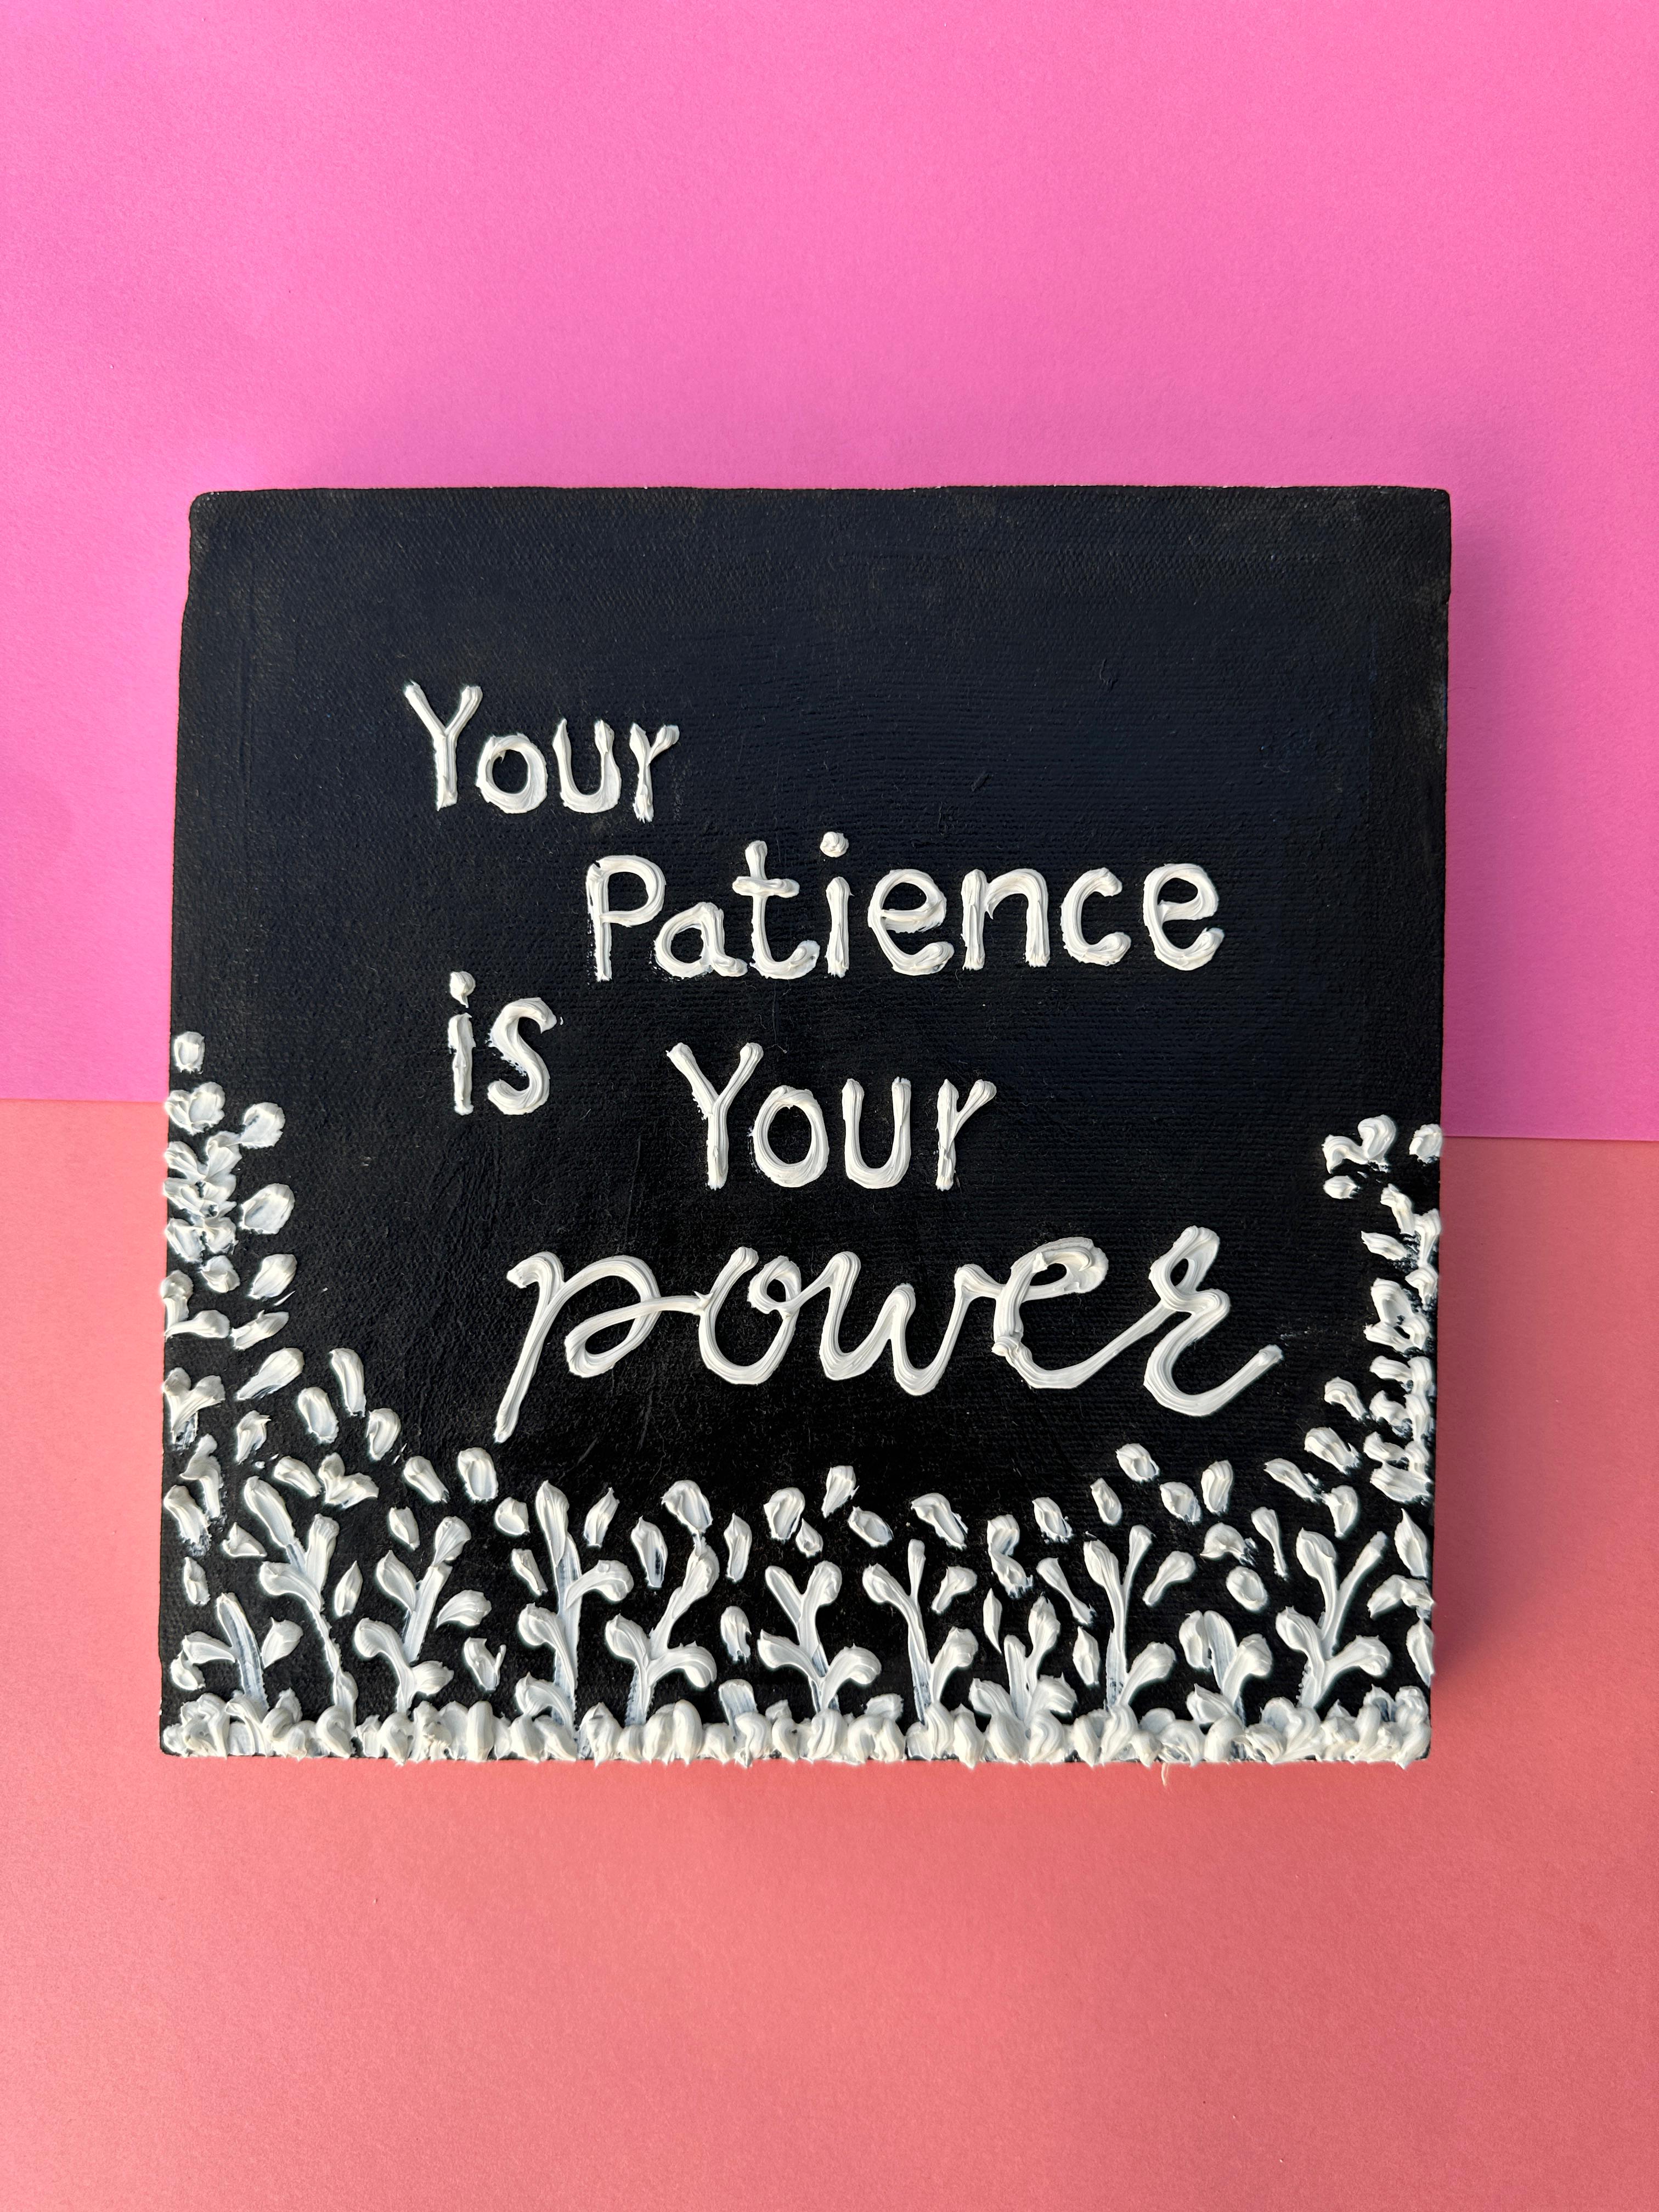 Your
Patience
is Your
power